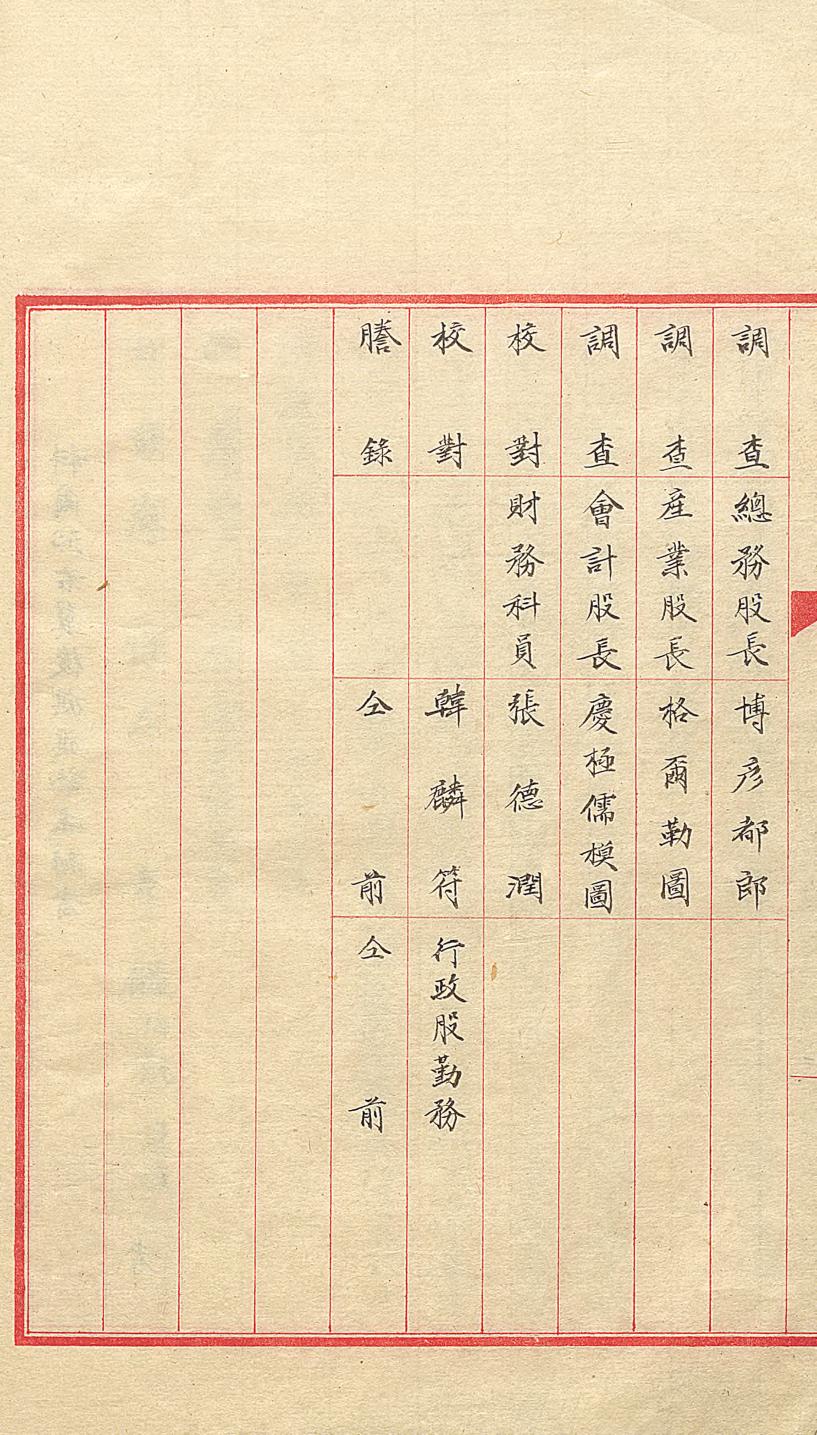 調查 總務股長 博彥都郎
調查 産業股長 格爾勒圖
調查 會計股長 慶極儒模圖
校對 財務科員 張德潤
校對 韓麟符 行政股勤務
謄錄 仝前 仝前